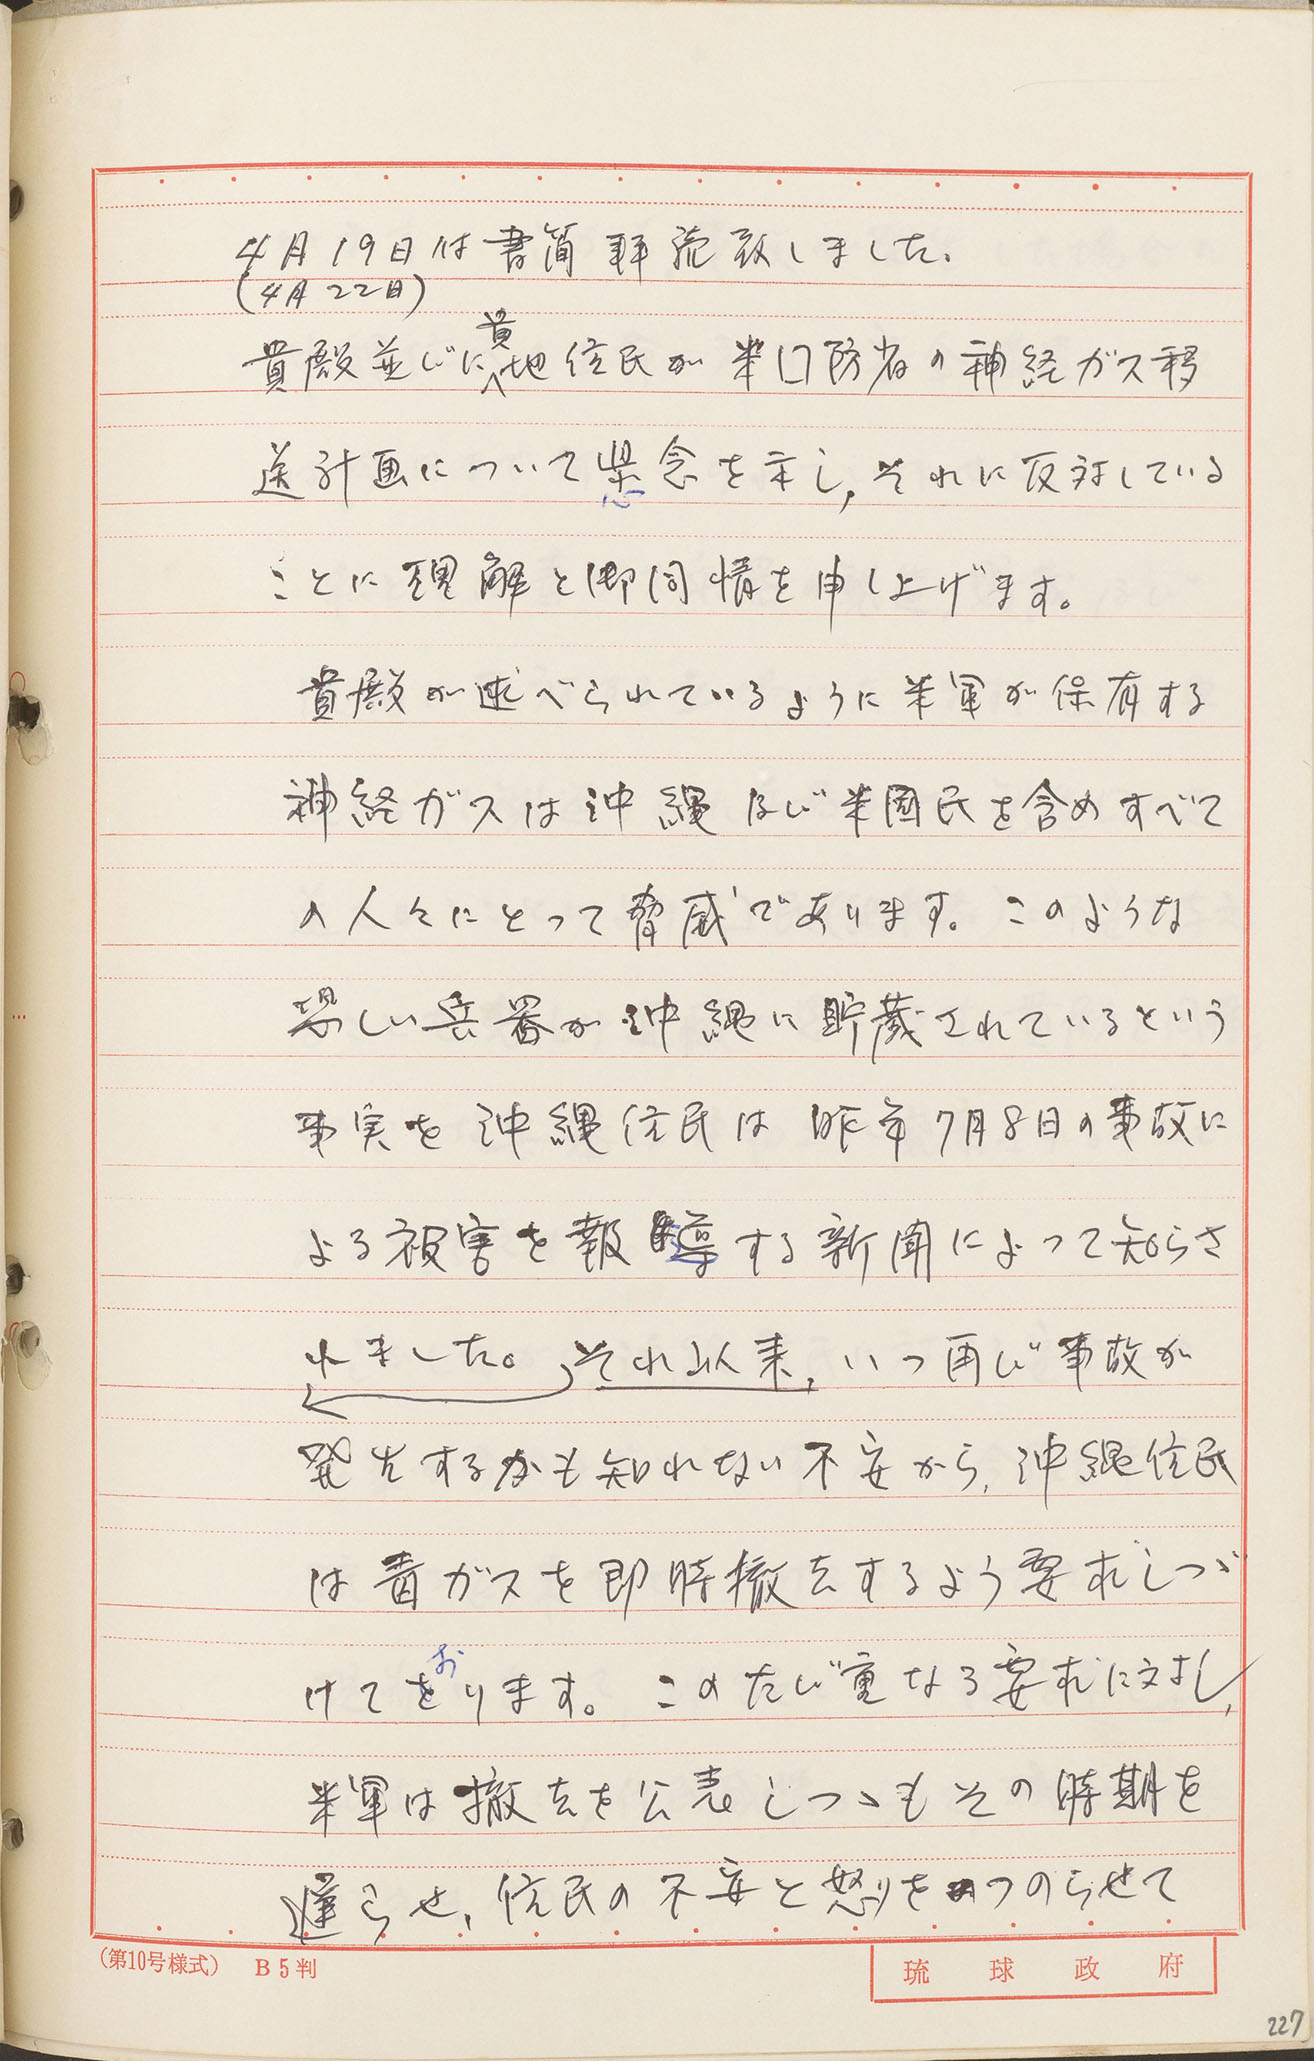 4月19日付書簡拝読致しました。
(4月22日)
貴殿並びに貴地住民が米国防省の神経ガス移
送計画について懸念を示し、それに反対している
ことに理解と御同情を申し上げます。
貴殿が述べられているように米軍が保有する
神経ガスは沖縄及び米國民を含めすべて
の人々にとって脅威であります。このような
恐しい兵器が沖縄に貯蔵されているという
事実を沖縄住民は昨年7月8日の事故に
よる被害を報導する新聞によって知らさ
れました。それ以来、いつ再び事故が
発生するかも知れない不安から、沖縄住民
は毒ガスを即時撤去するよう要求しつゞ
けております。このたび重なる要求に対し、
米軍は撤去を公表しつゝもその時期を
遅らせ、住民の不安と怒りをつのらせて
(第10号様式) B5判
琉球政府
227